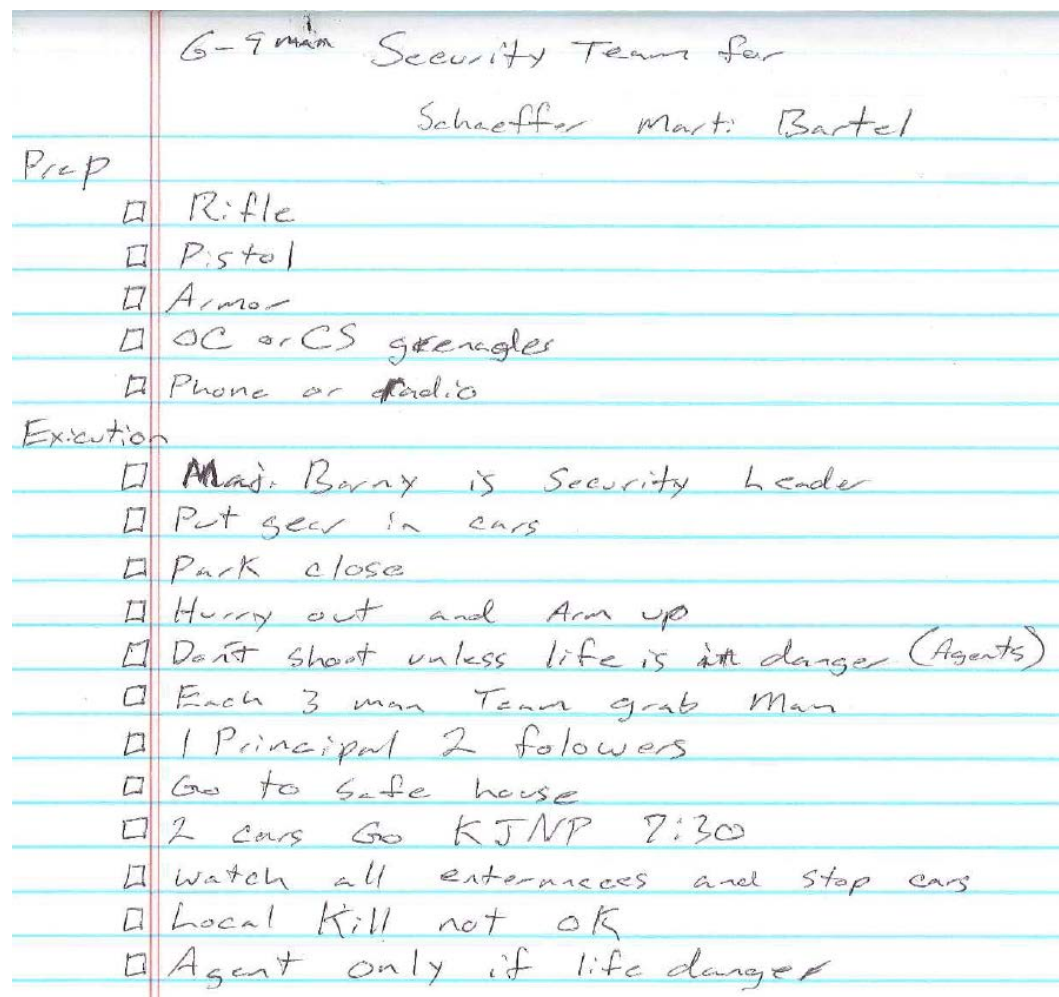 6-9 man Security Team for
Schaeffer Marti Bartel
Prep
Rifle
Pistol
Armor
OC or CS grenagles
Phone or radio
Exicution
Maj. Barny is Security Leader
Put gear in cars
Park close
Hurry out and Arm up
Don't shoot unless life is in danger (Agents)
Each 3 man Team grab Man
1 Principal 2 folowers
Go to Safe house
2 cars Go KJNP 7:30
watch all enterances and stop cars
Local Kill not OK
Agent only if life danger